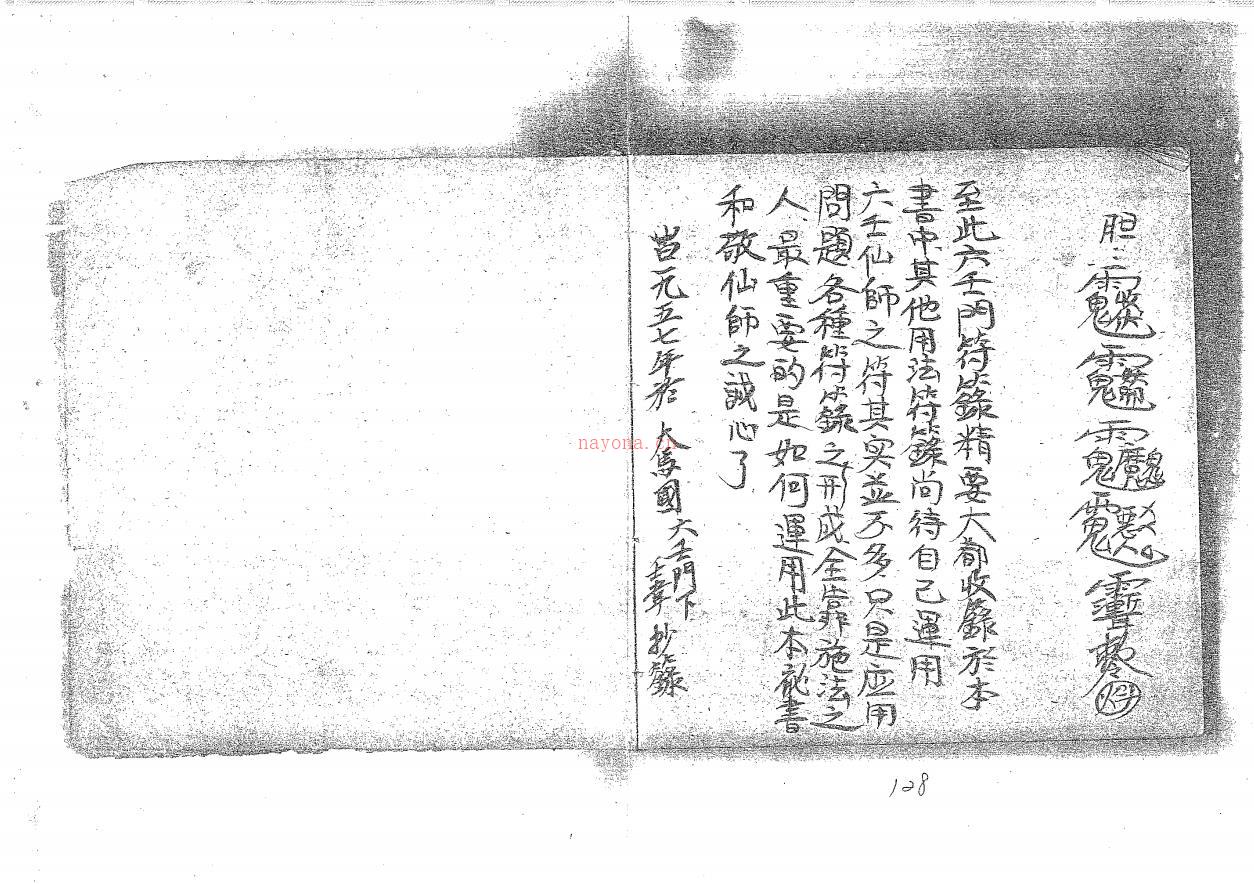 胆
至此六壬門符籙精要大都收錄於本
書中其他用法符籙尚待自己運用
六壬仙師之符其实並不多只是应用
問題各種符籙之形成全靠施法之
人最重要的是如何運用此本祕書
和敬仙師之誠心了
岦元五七年於大馬國六壬門下
抄錄
nayona.cn
128